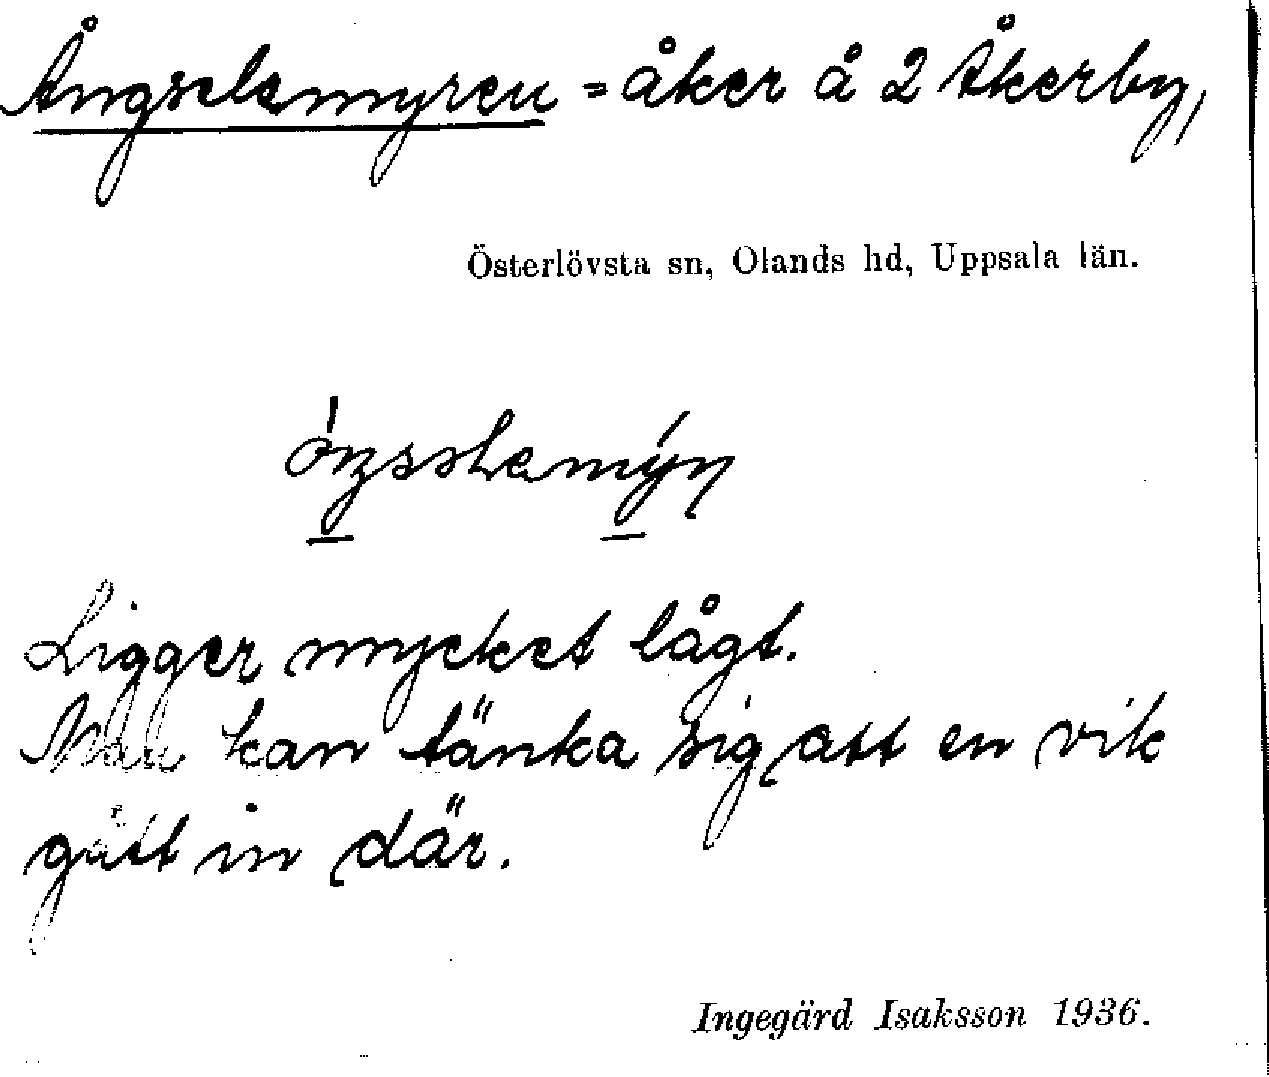 Ångselemyren = åker å 2 Åkerby,
Österlövsta sn, Olands hd, Uppsala län.
Ligger mycket lågt.
Man kan tänka sig att en vik
gått in där.
Ingegärd Isaksson 1936.